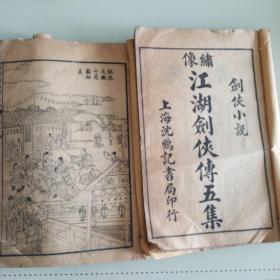 繡像
劍俠小說
江湖劍俠傳五集
上海沈鶴記書局印行